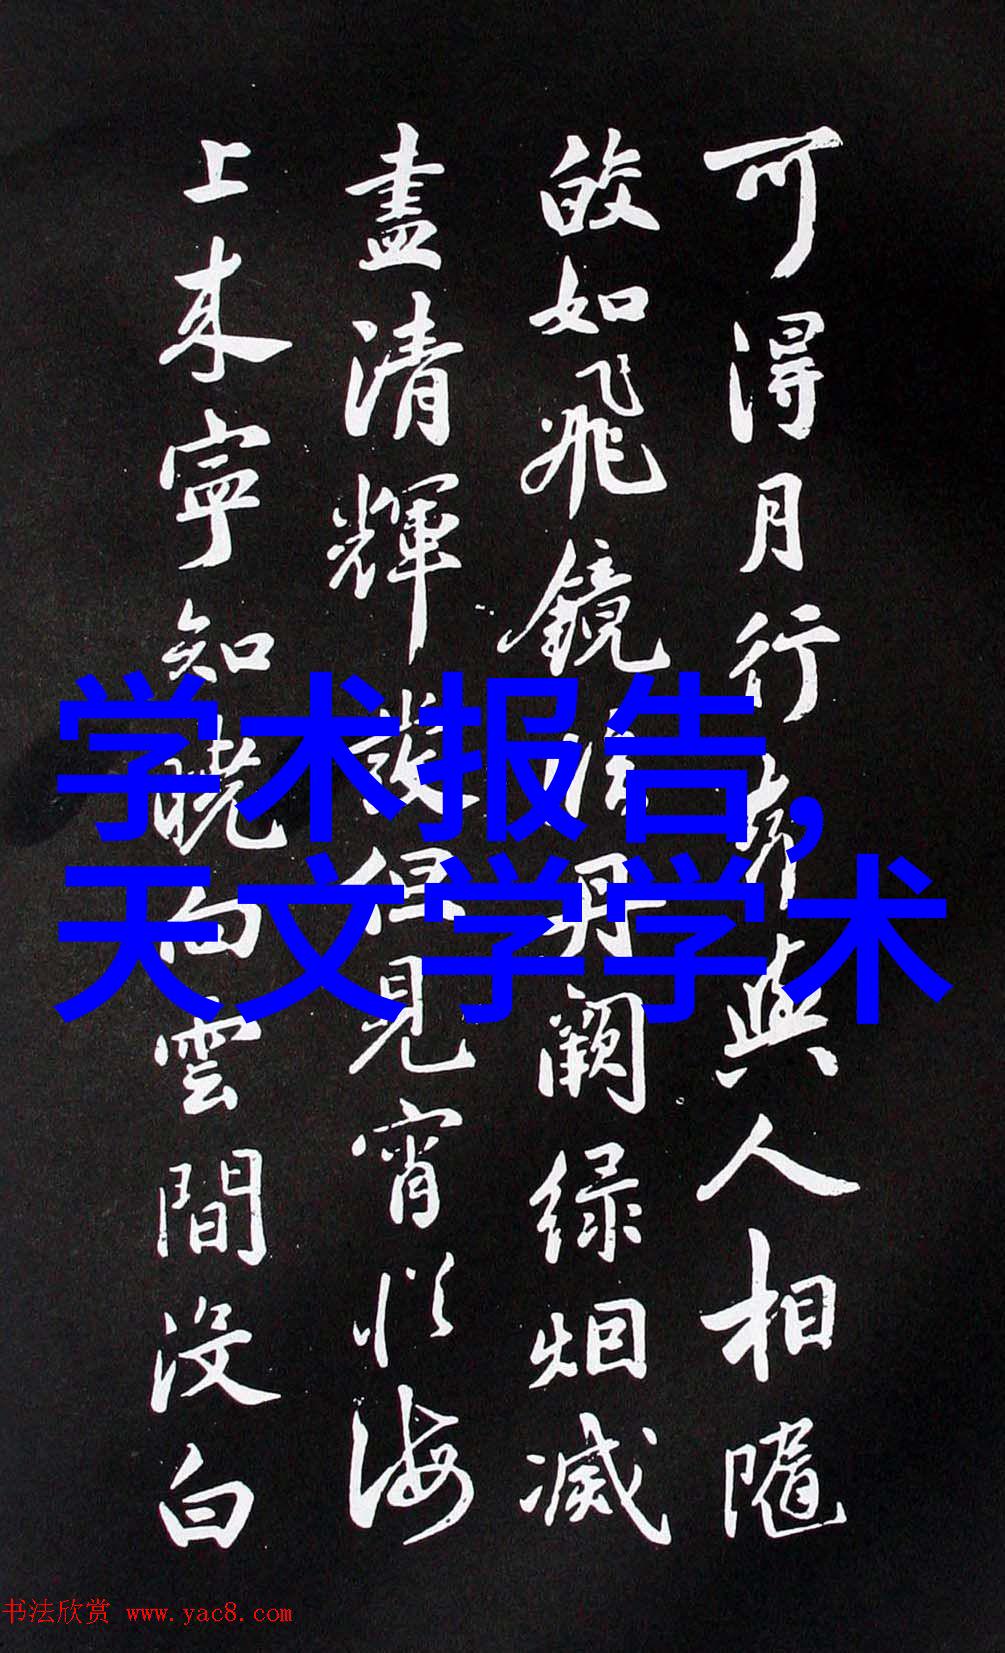 可得月行與人相隨
皎如飛鏡臨丹闕绿烟滅
盡清輝發但見宵從海
上来寧知曉向雲間没白
学术报告,
天文学学术
书法欣赏 www.yac8.com